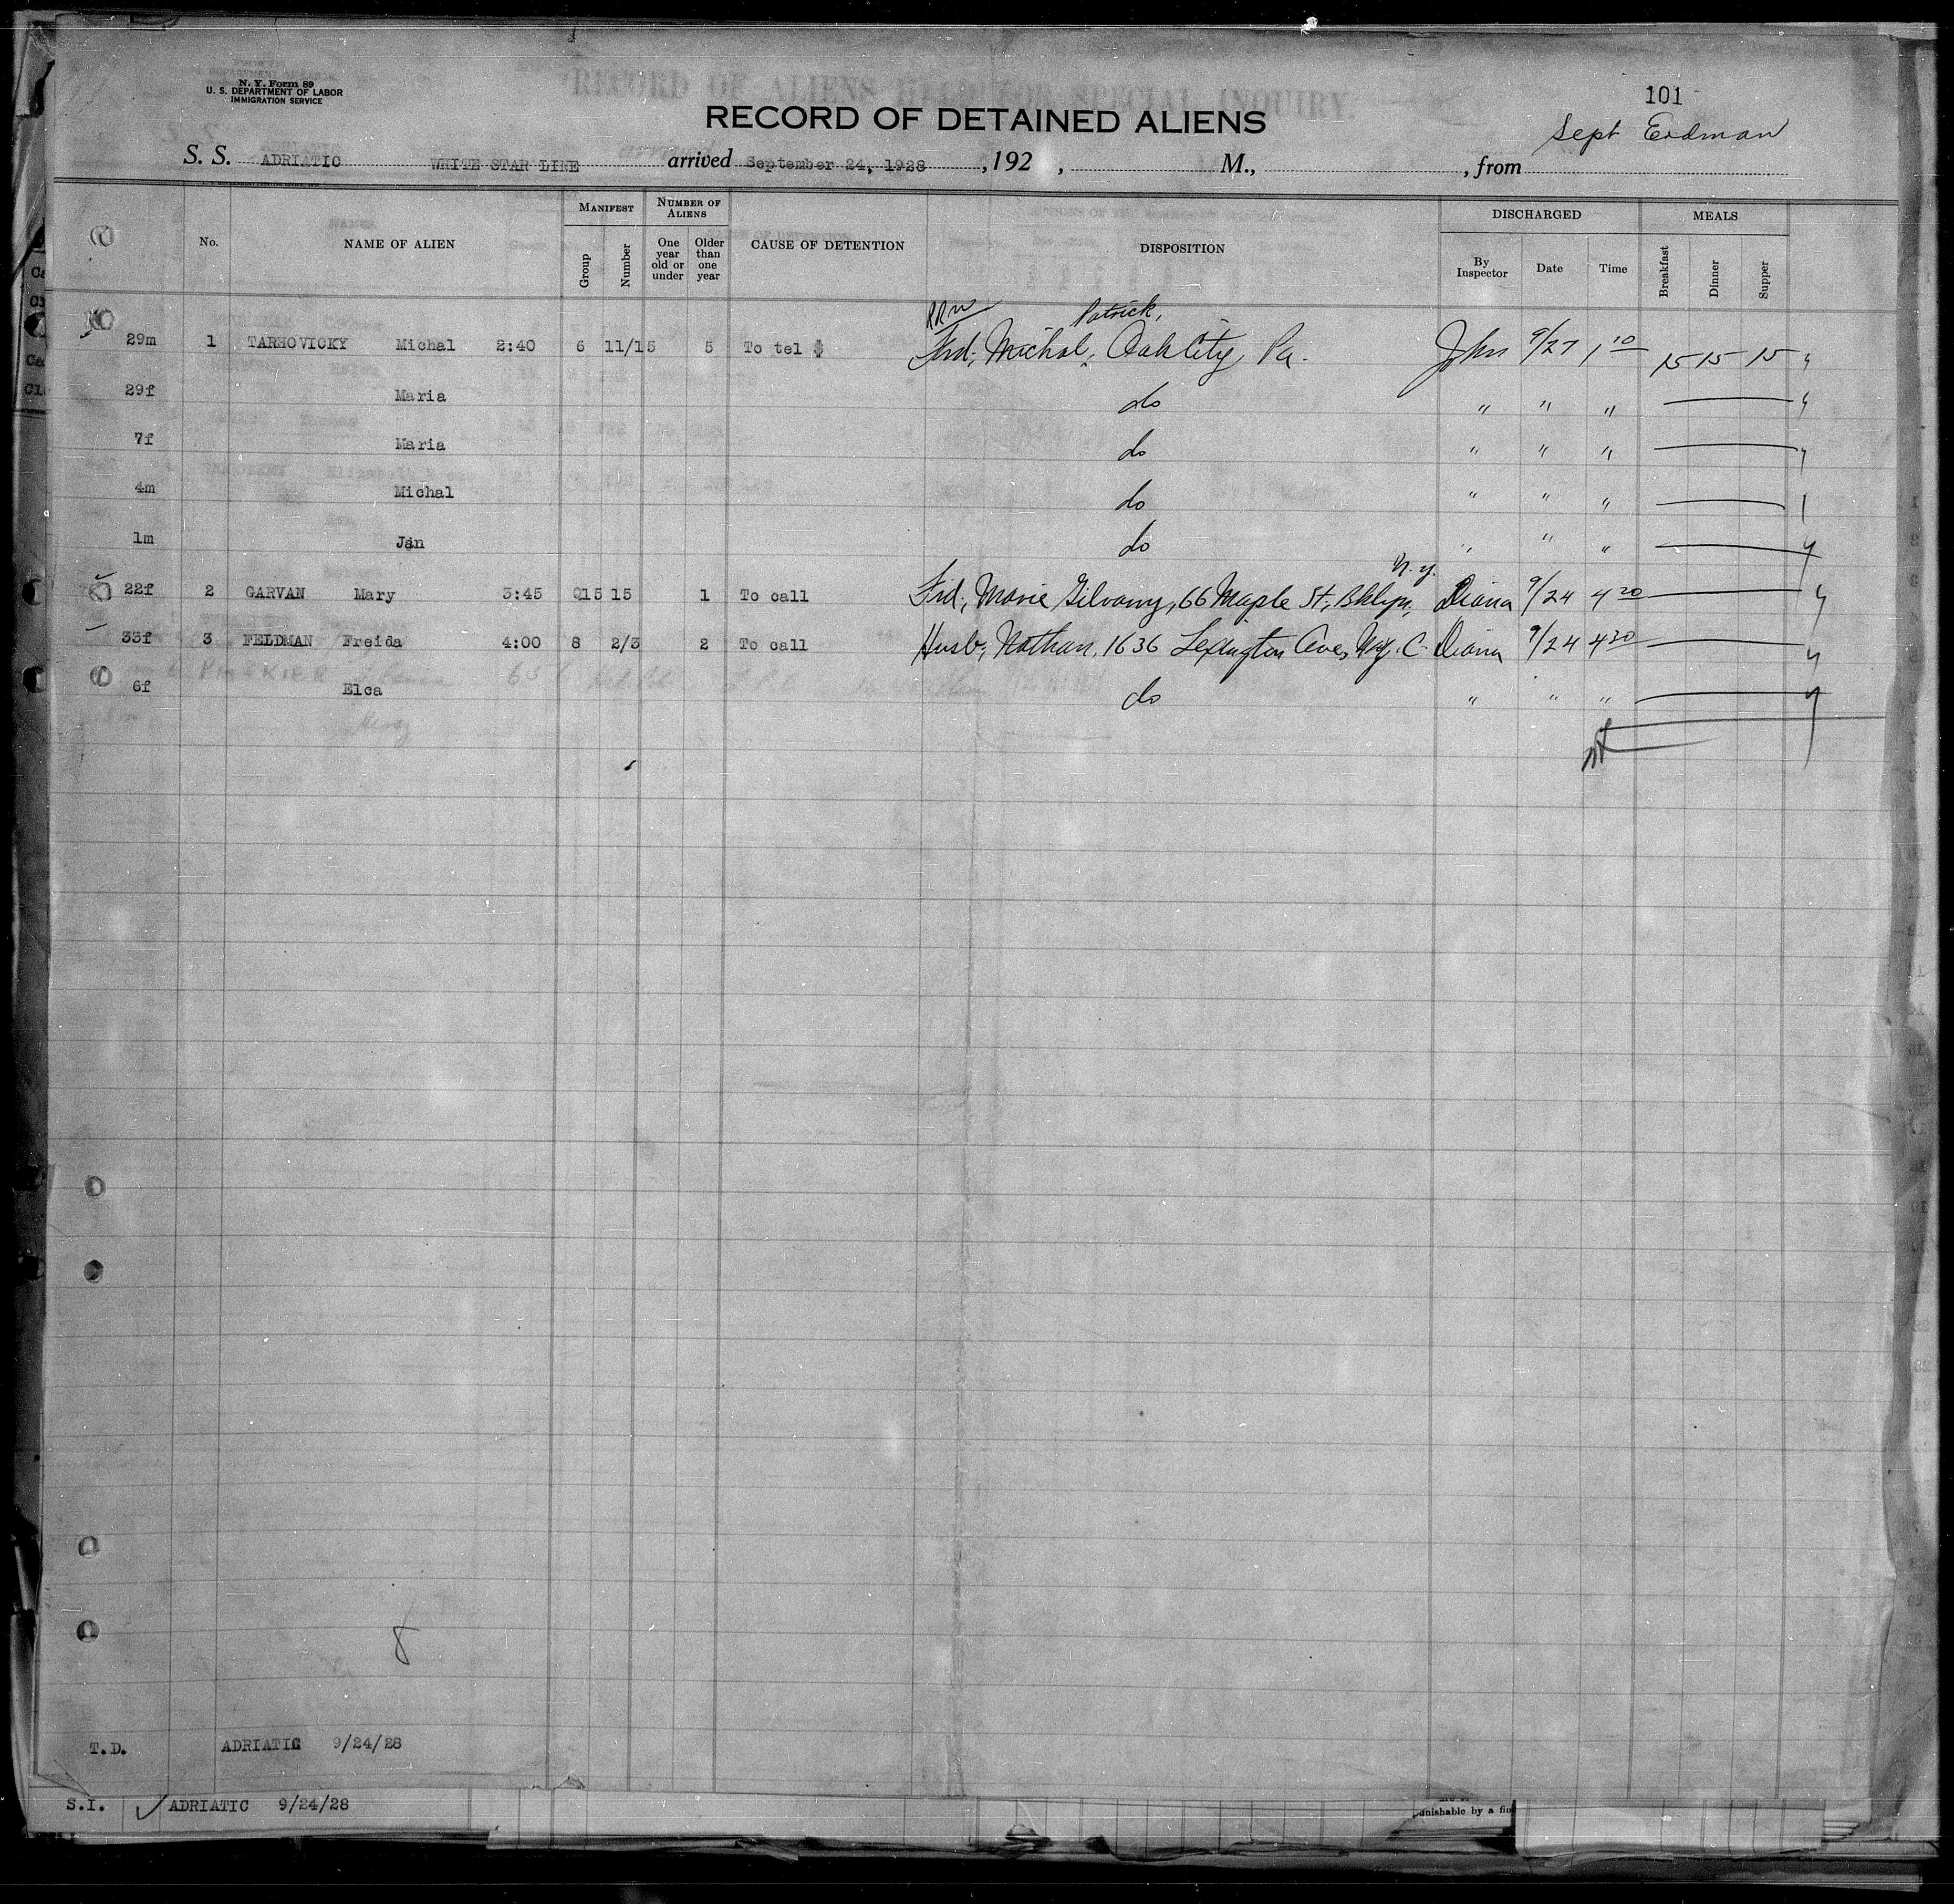 N. Y. Form 89
U. S. DEPARTMENT OF LABOR
IMMIGRATION SERVICE
RECORD OF ALIENS HELD FOR SPECIAL INQUIRY.
101
RECORD OF DETAINED ALIENS
Sept Erdman
S. S. ADRIATIC WHITE STAR LINE arrived September 24, 1928 , 192 , M., , from
No. NAME OF ALIEN MANIFEST Group Number NUMBER OF ALIENS One year old or under Older than one year CAUSE OF DETENTION DISPOSITION DISCHARGED By Inspector Date Time MEALS Breakfast Dinner Supper
Patrick,
29m 1 TARHOVICKY Michal 2:40 6 11/15 5 To tel $ Frd, Michal, Oak City, Pa. John 9/27 1 10 15 15 15
29f Maria do " " "
7f Maria do " " "
4m Michal do " " "
1m Jan do " " "
N.Y.
22f 2 GARVAN Mary 3:45 Q15 15 1 To call Frd, Marie Gilvany, 66 Maple St, Bklyn, Diana 9/24 4 20
33f 3 FELDMAN Freida 4:00 8 2/3 2 To call Husb, Nathan, 1636 Lexington Ave, N.Y.C. Diana 9/24 4 30
6f Elca do " " "
8
T.D. ADRIATIC 9/24/28
S.I. ADRIATIC 9/24/28
punishable by a fin